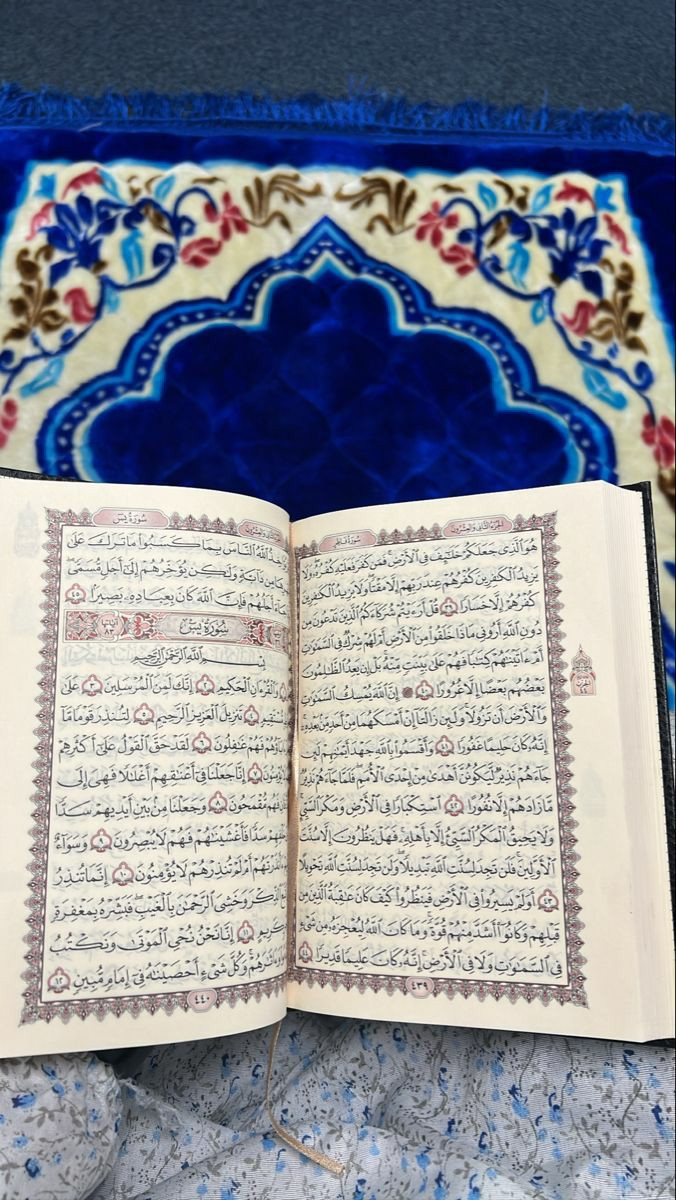 الجزء الثاني والعشرون سورة فاطر
هُوَ ٱلَّذِى جَعَلَكُمْ خَلَـٰٓئِفَ فِى ٱلْأَرْضِ ۚ فَمَن كَفَرَ فَعَلَيْهِ كُفْرُهُۥ ۖ وَلَا
يَزِيدُ ٱلْكَـٰفِرِينَ كُفْرُهُمْ عِندَ رَبِّهِمْ إِلَّا مَقْتًا ۖ وَلَا يَزِيدُ ٱلْكَـٰفِرِينَ
كُفْرُهُمْ إِلَّا خَسَارًا ٣٩ قُلْ أَرَءَيْتُمْ شُرَكَآءَكُمُ ٱلَّذِينَ تَدْعُونَ مِن
دُونِ ٱللَّهِ أَرُونِى مَاذَا خَلَقُوا۟ مِنَ ٱلْأَرْضِ أَمْ لَهُمْ شِرْكٌ فِى ٱلسَّمَـٰوَٰتِ
أَمْ ءَاتَيْنَـٰهُمْ كِتَـٰبًا فَهُمْ عَلَىٰ بَيِّنَتٍ مِّنْهُ ۚ بَلْ إِن يَعِدُ ٱلظَّـٰلِمُونَ
بَعْضُهُم بَعْضًا إِلَّا غُرُورًا ٤٠ ۞ إِنَّ ٱللَّهَ يُمْسِكُ ٱلسَّمَـٰوَٰتِ
وَٱلْأَرْضَ أَن تَزُولَا ۚ وَلَئِن زَالَتَآ إِنْ أَمْسَكَهُمَا مِنْ أَحَدٍ مِّنۢ بَعْدِهِۦٓ ۚ
إِنَّهُۥ كَانَ حَلِيمًا غَفُورًا ٤١ وَأَقْسَمُوا۟ بِٱللَّهِ جَهْدَ أَيْمَـٰنِهِمْ لَئِن
جَآءَهُمْ نَذِيرٌ لَّيَكُونُنَّ أَهْدَىٰ مِنْ إِحْدَى ٱلْأُمَمِ ۖ فَلَمَّا جَآءَهُمْ نَذِيرٌ
مَّا زَادَهُمْ إِلَّا نُفُورًا ٤٢ ٱسْتِكْبَارًا فِى ٱلْأَرْضِ وَمَكْرَ ٱلسَّيِّئِ ۚ
وَلَا يَحِيقُ ٱلْمَكْرُ ٱلسَّيِّئُ إِلَّا بِأَهْلِهِۦ ۚ فَهَلْ يَنظُرُونَ إِلَّا سُنَّتَ
ٱلْأَوَّلِينَ ۚ فَلَن تَجِدَ لِسُنَّتِ ٱللَّهِ تَبْدِيلًا ۖ وَلَن تَجِدَ لِسُنَّتِ ٱللَّهِ تَحْوِيلًا
٤٣ أَوَلَمْ يَسِيرُوا۟ فِى ٱلْأَرْضِ فَيَنظُرُوا۟ كَيْفَ كَانَ عَـٰقِبَةُ ٱلَّذِينَ مِن
قَبْلِهِمْ وَكَانُوٓا۟ أَشَدَّ مِنْهُمْ قُوَّةً ۚ وَمَا كَانَ ٱللَّهُ لِيُعْجِزَهُۥ مِن شَىْءٍ
فِى ٱلسَّمَـٰوَٰتِ وَلَا فِى ٱلْأَرْضِ ۚ إِنَّهُۥ كَانَ عَلِيمًا قَدِيرًا ٤٤
٤٣٩
سورة يس
ٱللَّهُ ٱلنَّاسَ بِمَا كَسَبُوا۟ مَا تَرَكَ عَلَىٰ
مِن دَآبَّةٍ وَلَـٰكِن يُؤَخِّرُهُمْ إِلَىٰٓ أَجَلٍ مُّسَمًّى ۖ
أَجَلُهُمْ فَإِنَّ ٱللَّهَ كَانَ بِعِبَادِهِۦ بَصِيرًۢا ٤٥
سورة يس آياتها ٨٣
بِسْمِ ٱللَّهِ ٱلرَّحْمَـٰنِ ٱلرَّحِيمِ
وَٱلْقُرْءَانِ ٱلْحَكِيمِ ٢ إِنَّكَ لَمِنَ ٱلْمُرْسَلِينَ ٣ عَلَىٰ
مُّسْتَقِيمٍ ٤ تَنزِيلَ ٱلْعَزِيزِ ٱلرَّحِيمِ ٥ لِتُنذِرَ قَوْمًا مَّآ
ءَابَآؤُهُمْ فَهُمْ غَـٰفِلُونَ ٦ لَقَدْ حَقَّ ٱلْقَوْلُ عَلَىٰٓ أَكْثَرِهِمْ
٧ إِنَّا جَعَلْنَا فِىٓ أَعْنَـٰقِهِمْ أَغْلَـٰلًا فَهِىَ إِلَى
فَهُم مُّقْمَحُونَ ٨ وَجَعَلْنَا مِنۢ بَيْنِ أَيْدِيهِمْ سَدًّا
خَلْفِهِمْ سَدًّا فَأَغْشَيْنَـٰهُمْ فَهُمْ لَا يُبْصِرُونَ ٩ وَسَوَآءٌ
ءَأَنذَرْتَهُمْ أَمْ لَمْ تُنذِرْهُمْ لَا يُؤْمِنُونَ ١٠ إِنَّمَا تُنذِرُ
ٱلذِّكْرَ وَخَشِىَ ٱلرَّحْمَـٰنَ بِٱلْغَيْبِ ۖ فَبَشِّرْهُ بِمَغْفِرَةٍ
كَرِيمٍ ١١ إِنَّا نَحْنُ نُحْىِ ٱلْمَوْتَىٰ وَنَكْتُبُ
وَءَاثَـٰرَهُمْ ۚ وَكُلَّ شَىْءٍ أَحْصَيْنَـٰهُ فِىٓ إِمَامٍ مُّبِينٍ ١٢
٤٤٠